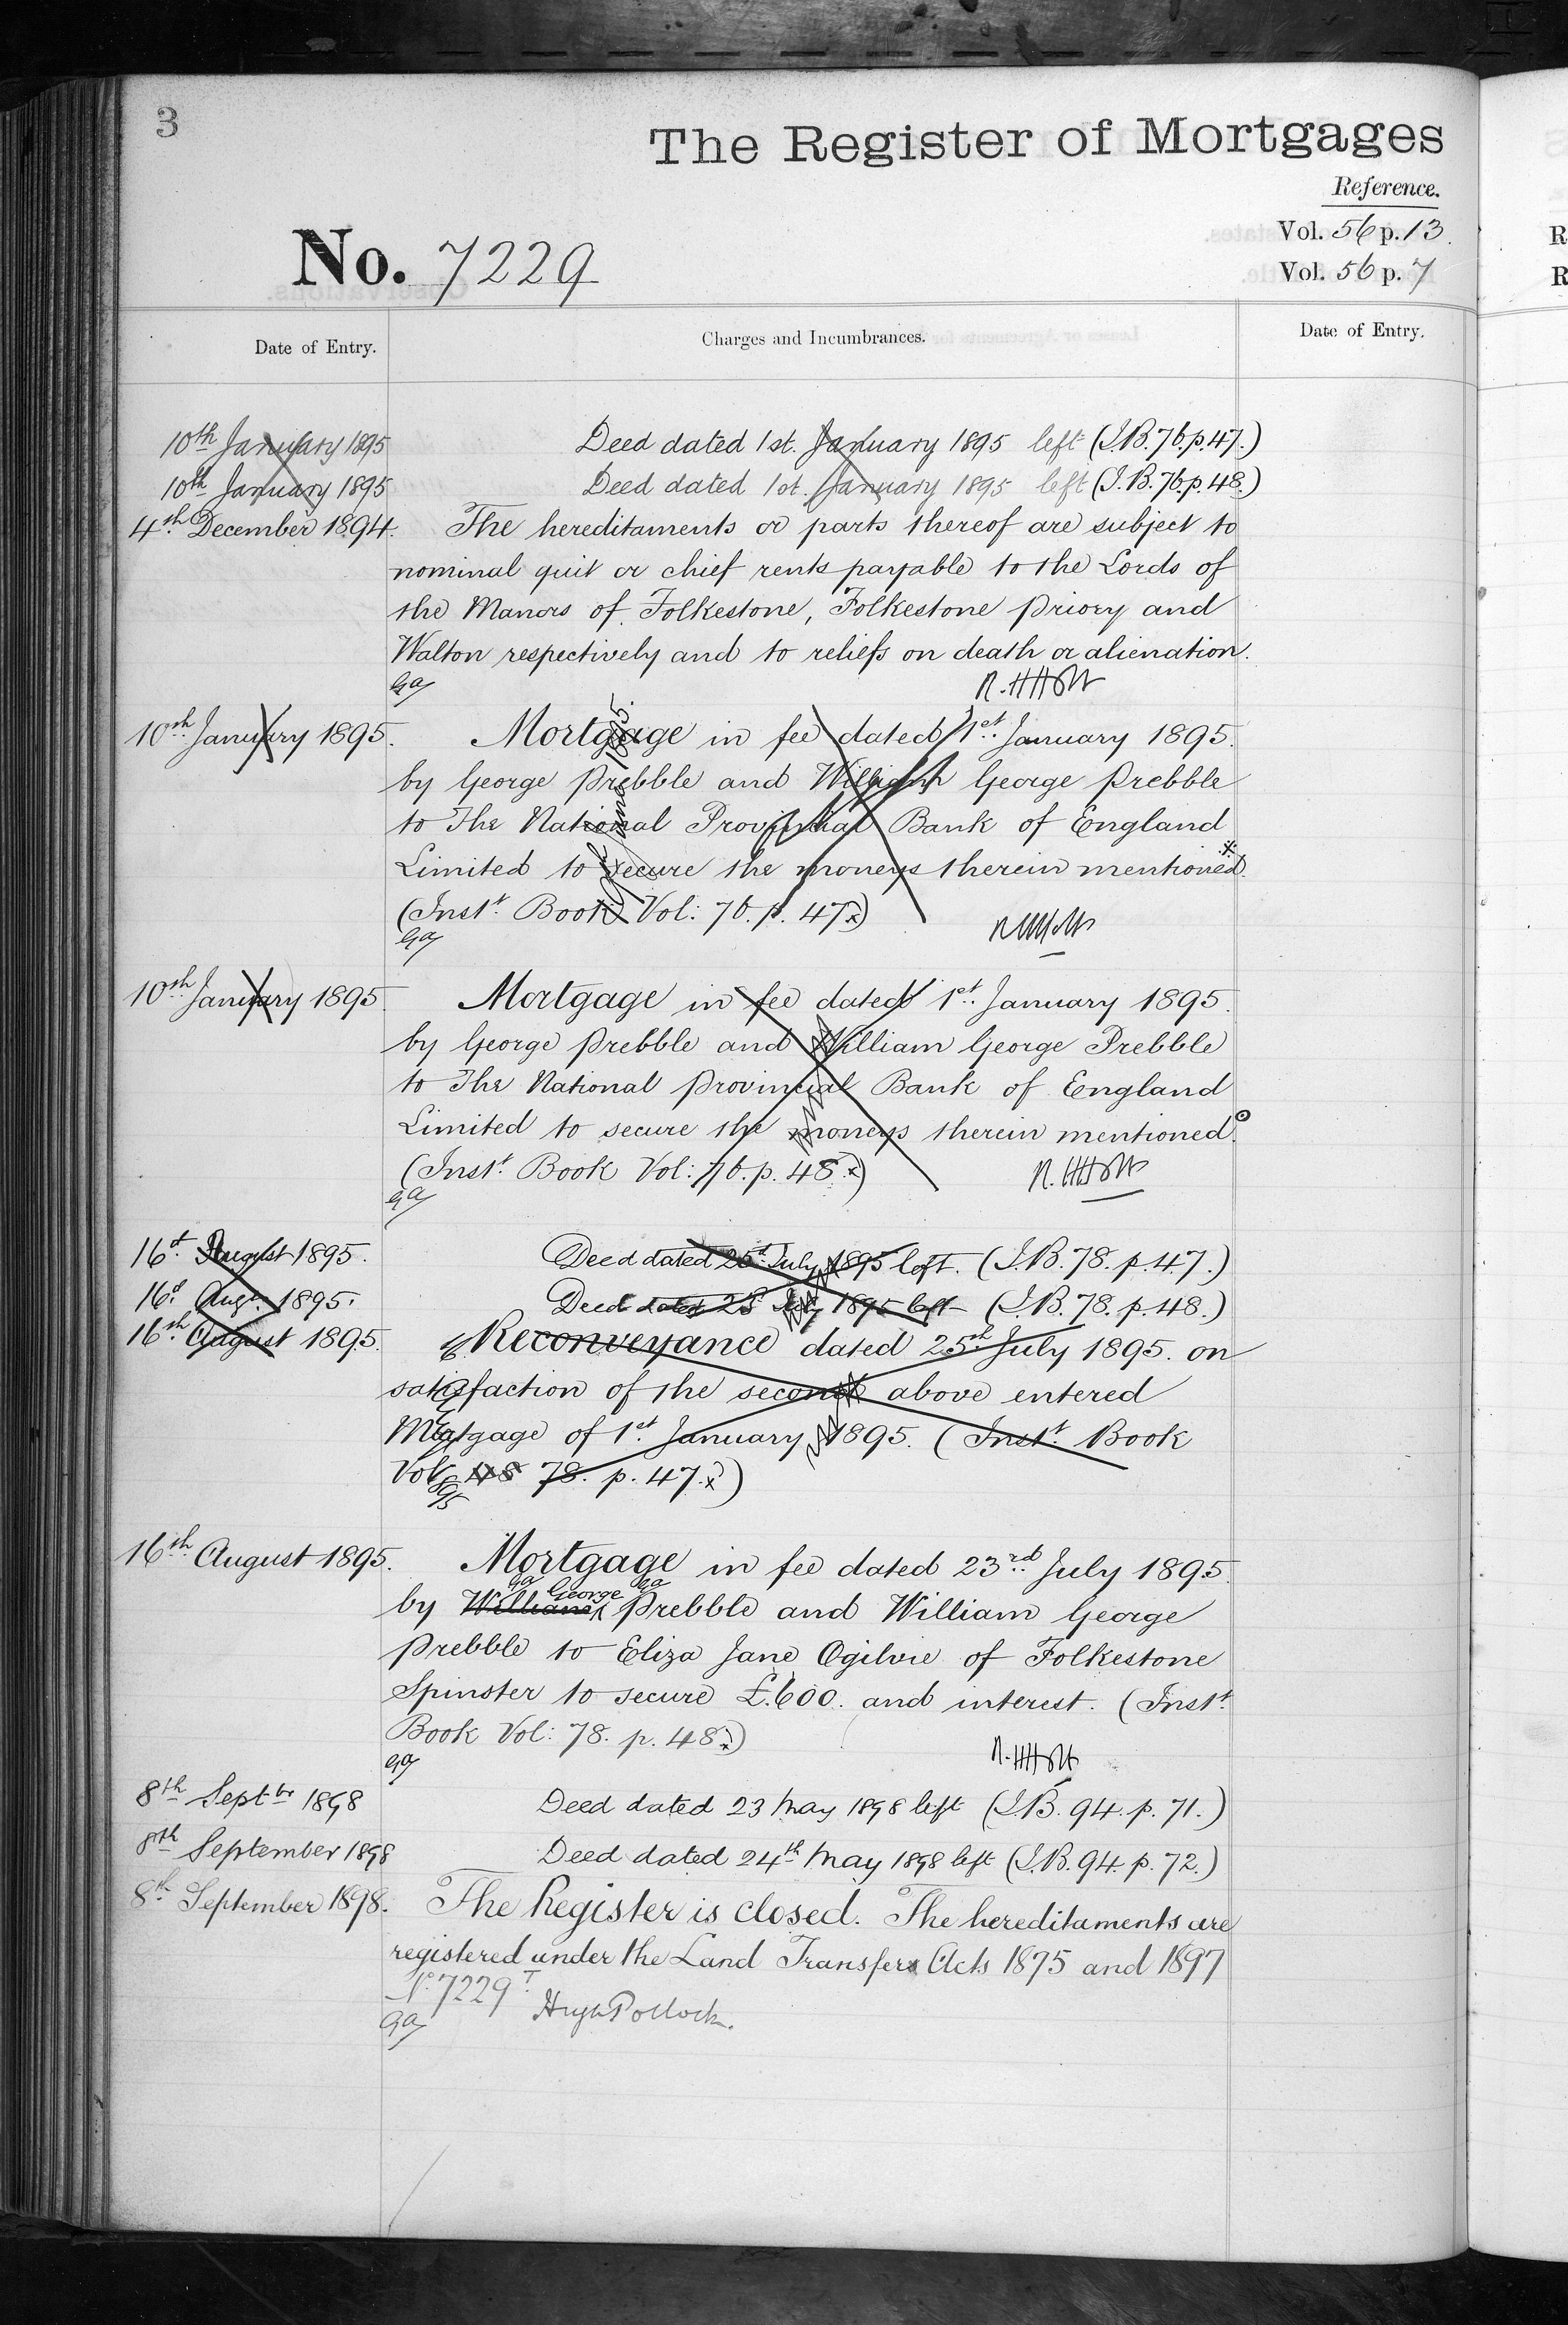 3
The Register of Mortgages
Reference.
Vol. 56 p. 13.
No. 7229
Vol. 56 p. 7
Date of Entry.
Charges and Incumbrances.
Date of Entry.
10th January 1895 Deed dated 1st. January 1895 left (I.B. 76. p. 47.)
10th January 1895 Deed dated 1st. January 1895 left (I.B. 76. p. 48.)
4th December 1894. The hereditaments or parts thereof are subject to
nominal quit or chief rents payable to the Lords of
the Manors of Folkestone, Folkestone Priory and
Walton respectively and to reliefs on death or alienation.
Ga
10th January 1895. Mortgage in fee dated 1st. January 1895.
by George Prebble and William George Prebble
to The National Provincial Bank of England
Limited to secure the moneys therein mentioned.
(Inst. Book Vol: 76. p. 47.x)
Ga
10th January 1895. Mortgage in fee dated 1st. January 1895.
by George Prebble and William George Prebble
to The National Provincial Bank of England
Limited to secure the moneys therein mentioned.
(Inst. Book Vol: 76. p. 48.x)
Ga
16th August 1895. Deed dated 25th July 1895 left. (I.B. 78. p. 47.)
16th Aug. 1895. Deed dated 23rd July 1895 left (I.B. 78. p. 48.)
16th August 1895. Reconveyance dated 25th July 1895. on
satisfaction of the second above entered
Mortgage of 1st January 1895. (Inst. Book
Vol. 48 78. p. 47.x)
16th August 1895. Mortgage in fee dated 23rd July 1895.
Ga George Ga
by William Prebble and William George
Prebble to Eliza Jane Ogilvie of Folkestone
Spinster to secure £.600. and interest. (Inst.
Book Vol: 78. p. 48.x)
Ga
8th Septbr 1898 Deed dated 23 May 1898 left (I.B. 94. p. 71.)
8th September 1898 Deed dated 24th May 1898 left (I.B. 94. p. 72.)
8th September 1898. The Register is closed. The hereditaments are
registered under the Land Transfer Acts 1875 and 1897
No. 7229T. Hugh Pollock.
Ga